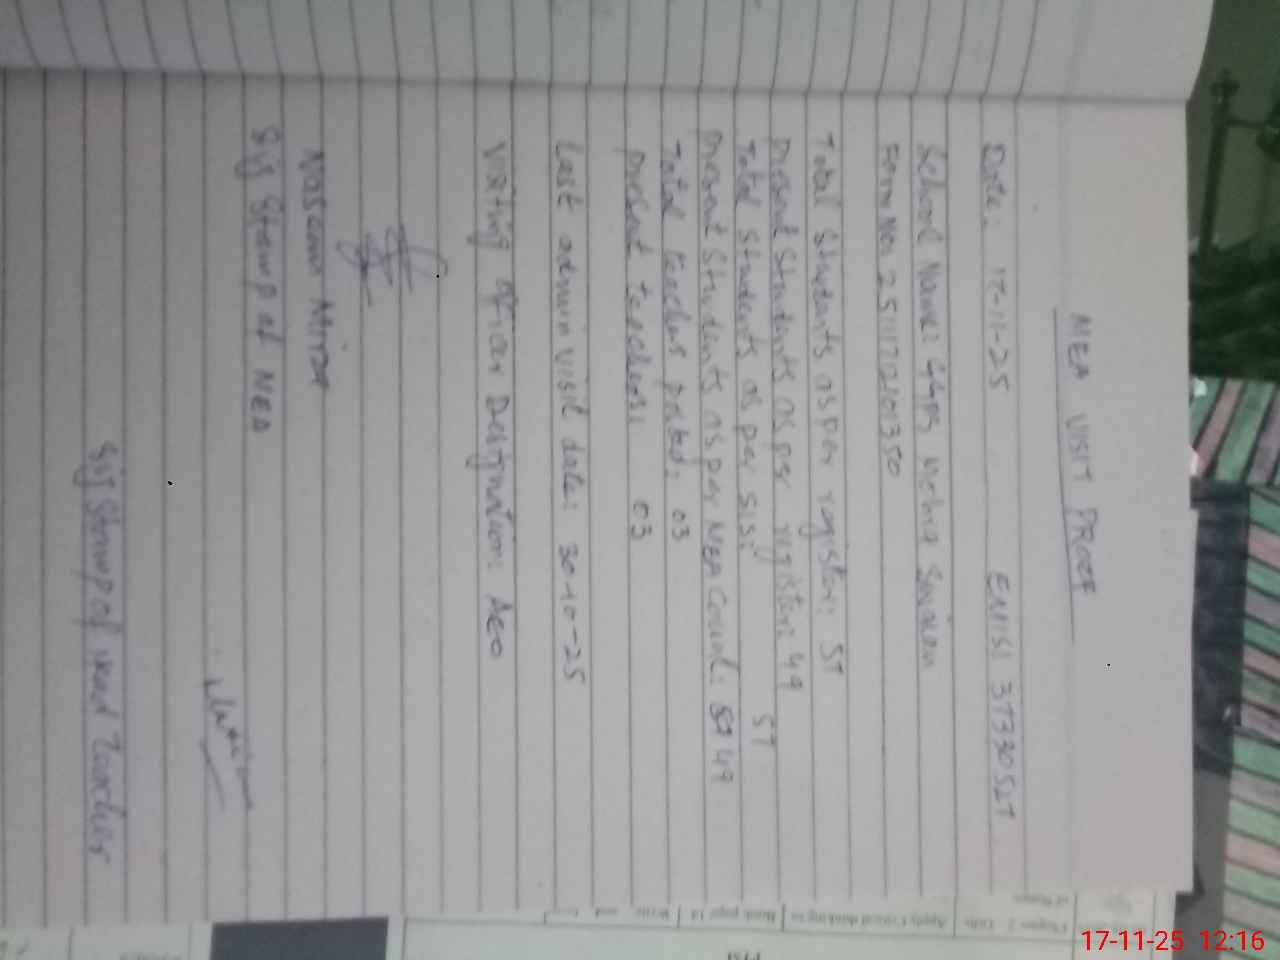 MEA VISIT PROOF
Date: 17-11-25 EMIS: 37330527
School Name: GGPS Mehra
Form No: 25111712101350
Total Students as per register: 57
Present Students as per register: 49
Total Students as per SIS: 57
Present Students as per MEA Count: 49
Total teachers posted: 03
Present teachers: 03
Last admin visit date: 30-10-25
Visiting officer Designation AEO
Naseem Mirza
Sig Stamp of MEA
Sig Stamp of Head Teacher
17-11-25 12:16